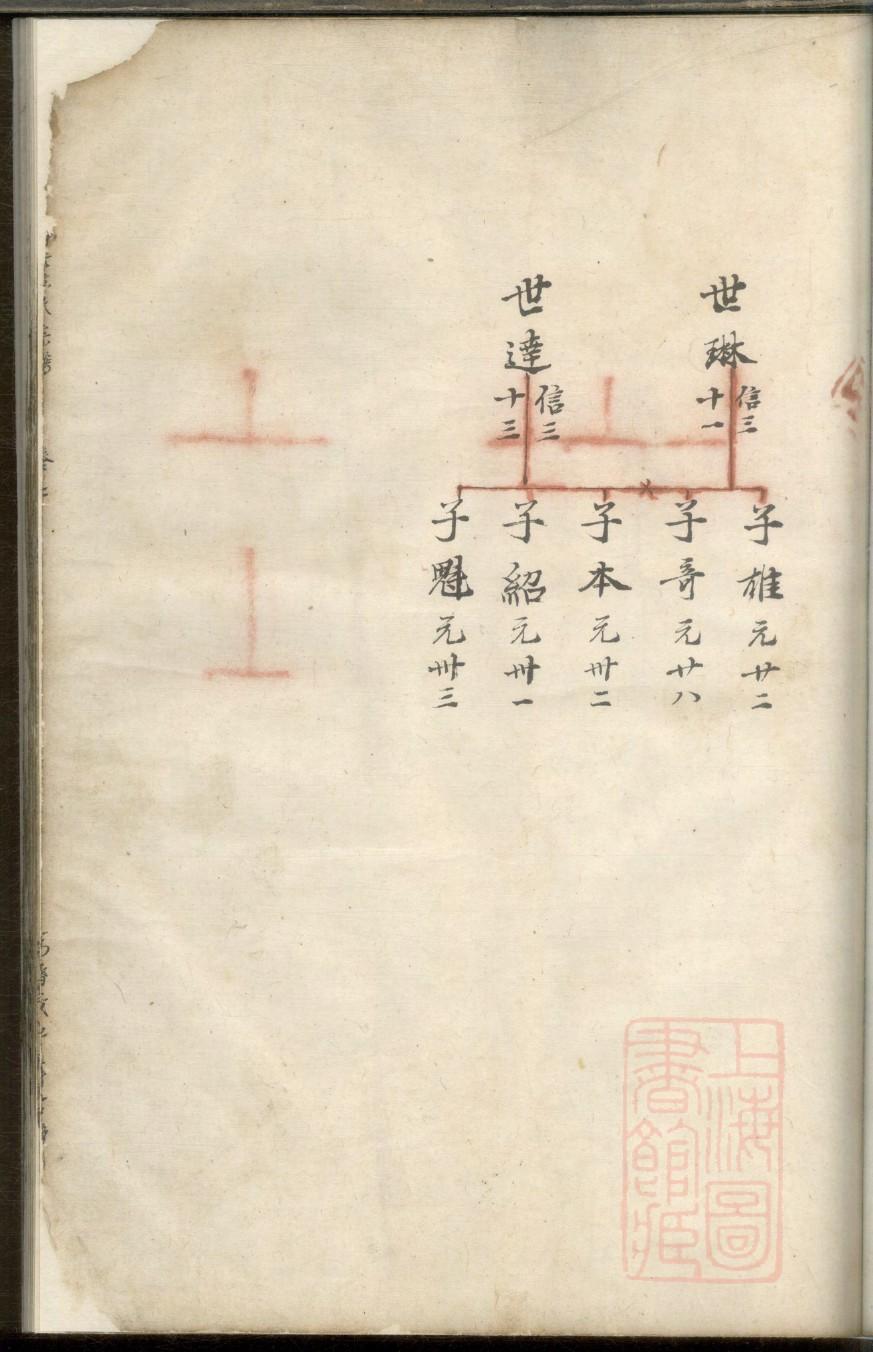 世琳
信三
十一
世達
信三
十三
子雄元廿二
子奇元廿八
子本元卅二
子紹元卅一
子魁元卅三
上海圖
書館藏